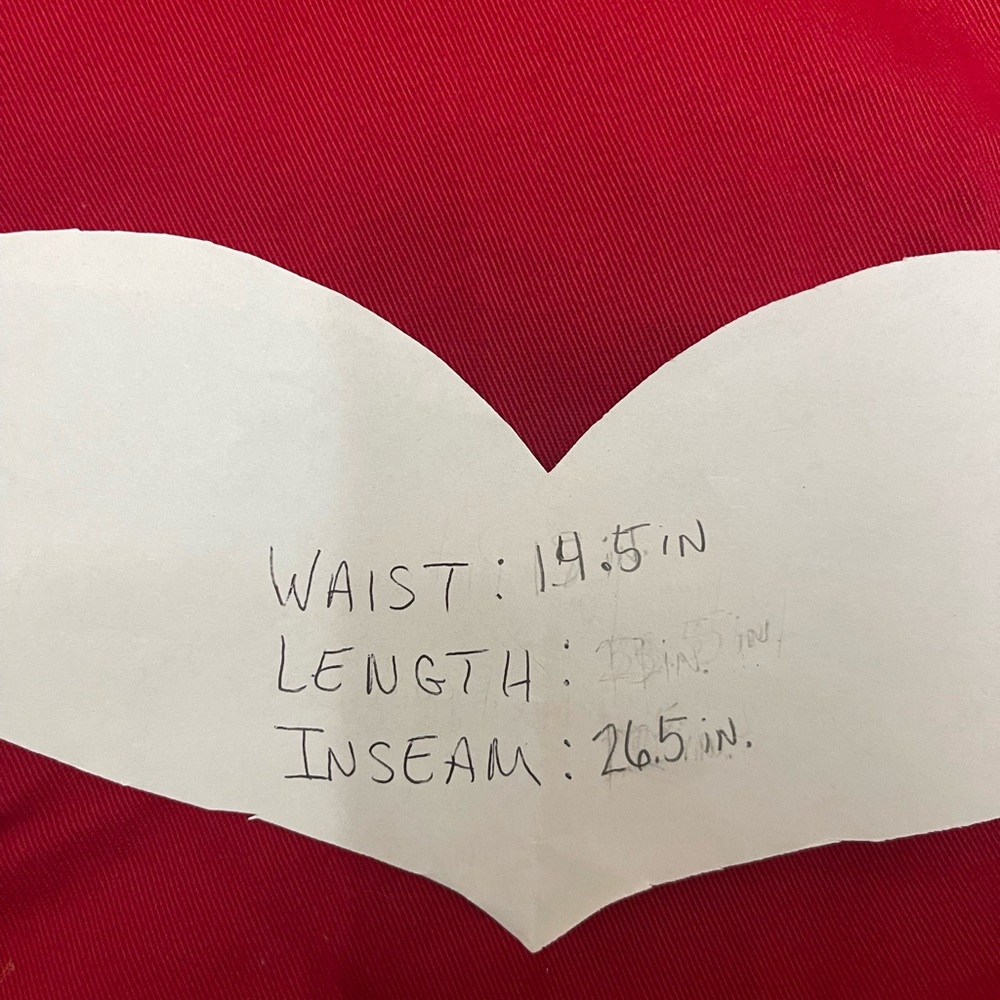 WAIST: 19.5 IN
LENGTH:
INSEAM: 26.5 IN.